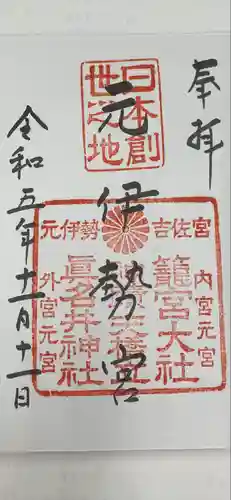 奉拝
日本創
世之地
元伊勢宮
元伊勢 吉佐宮
内宮元宮
籠宮大社
眞名井神社
外宮元宮
令和五年十一月十一日